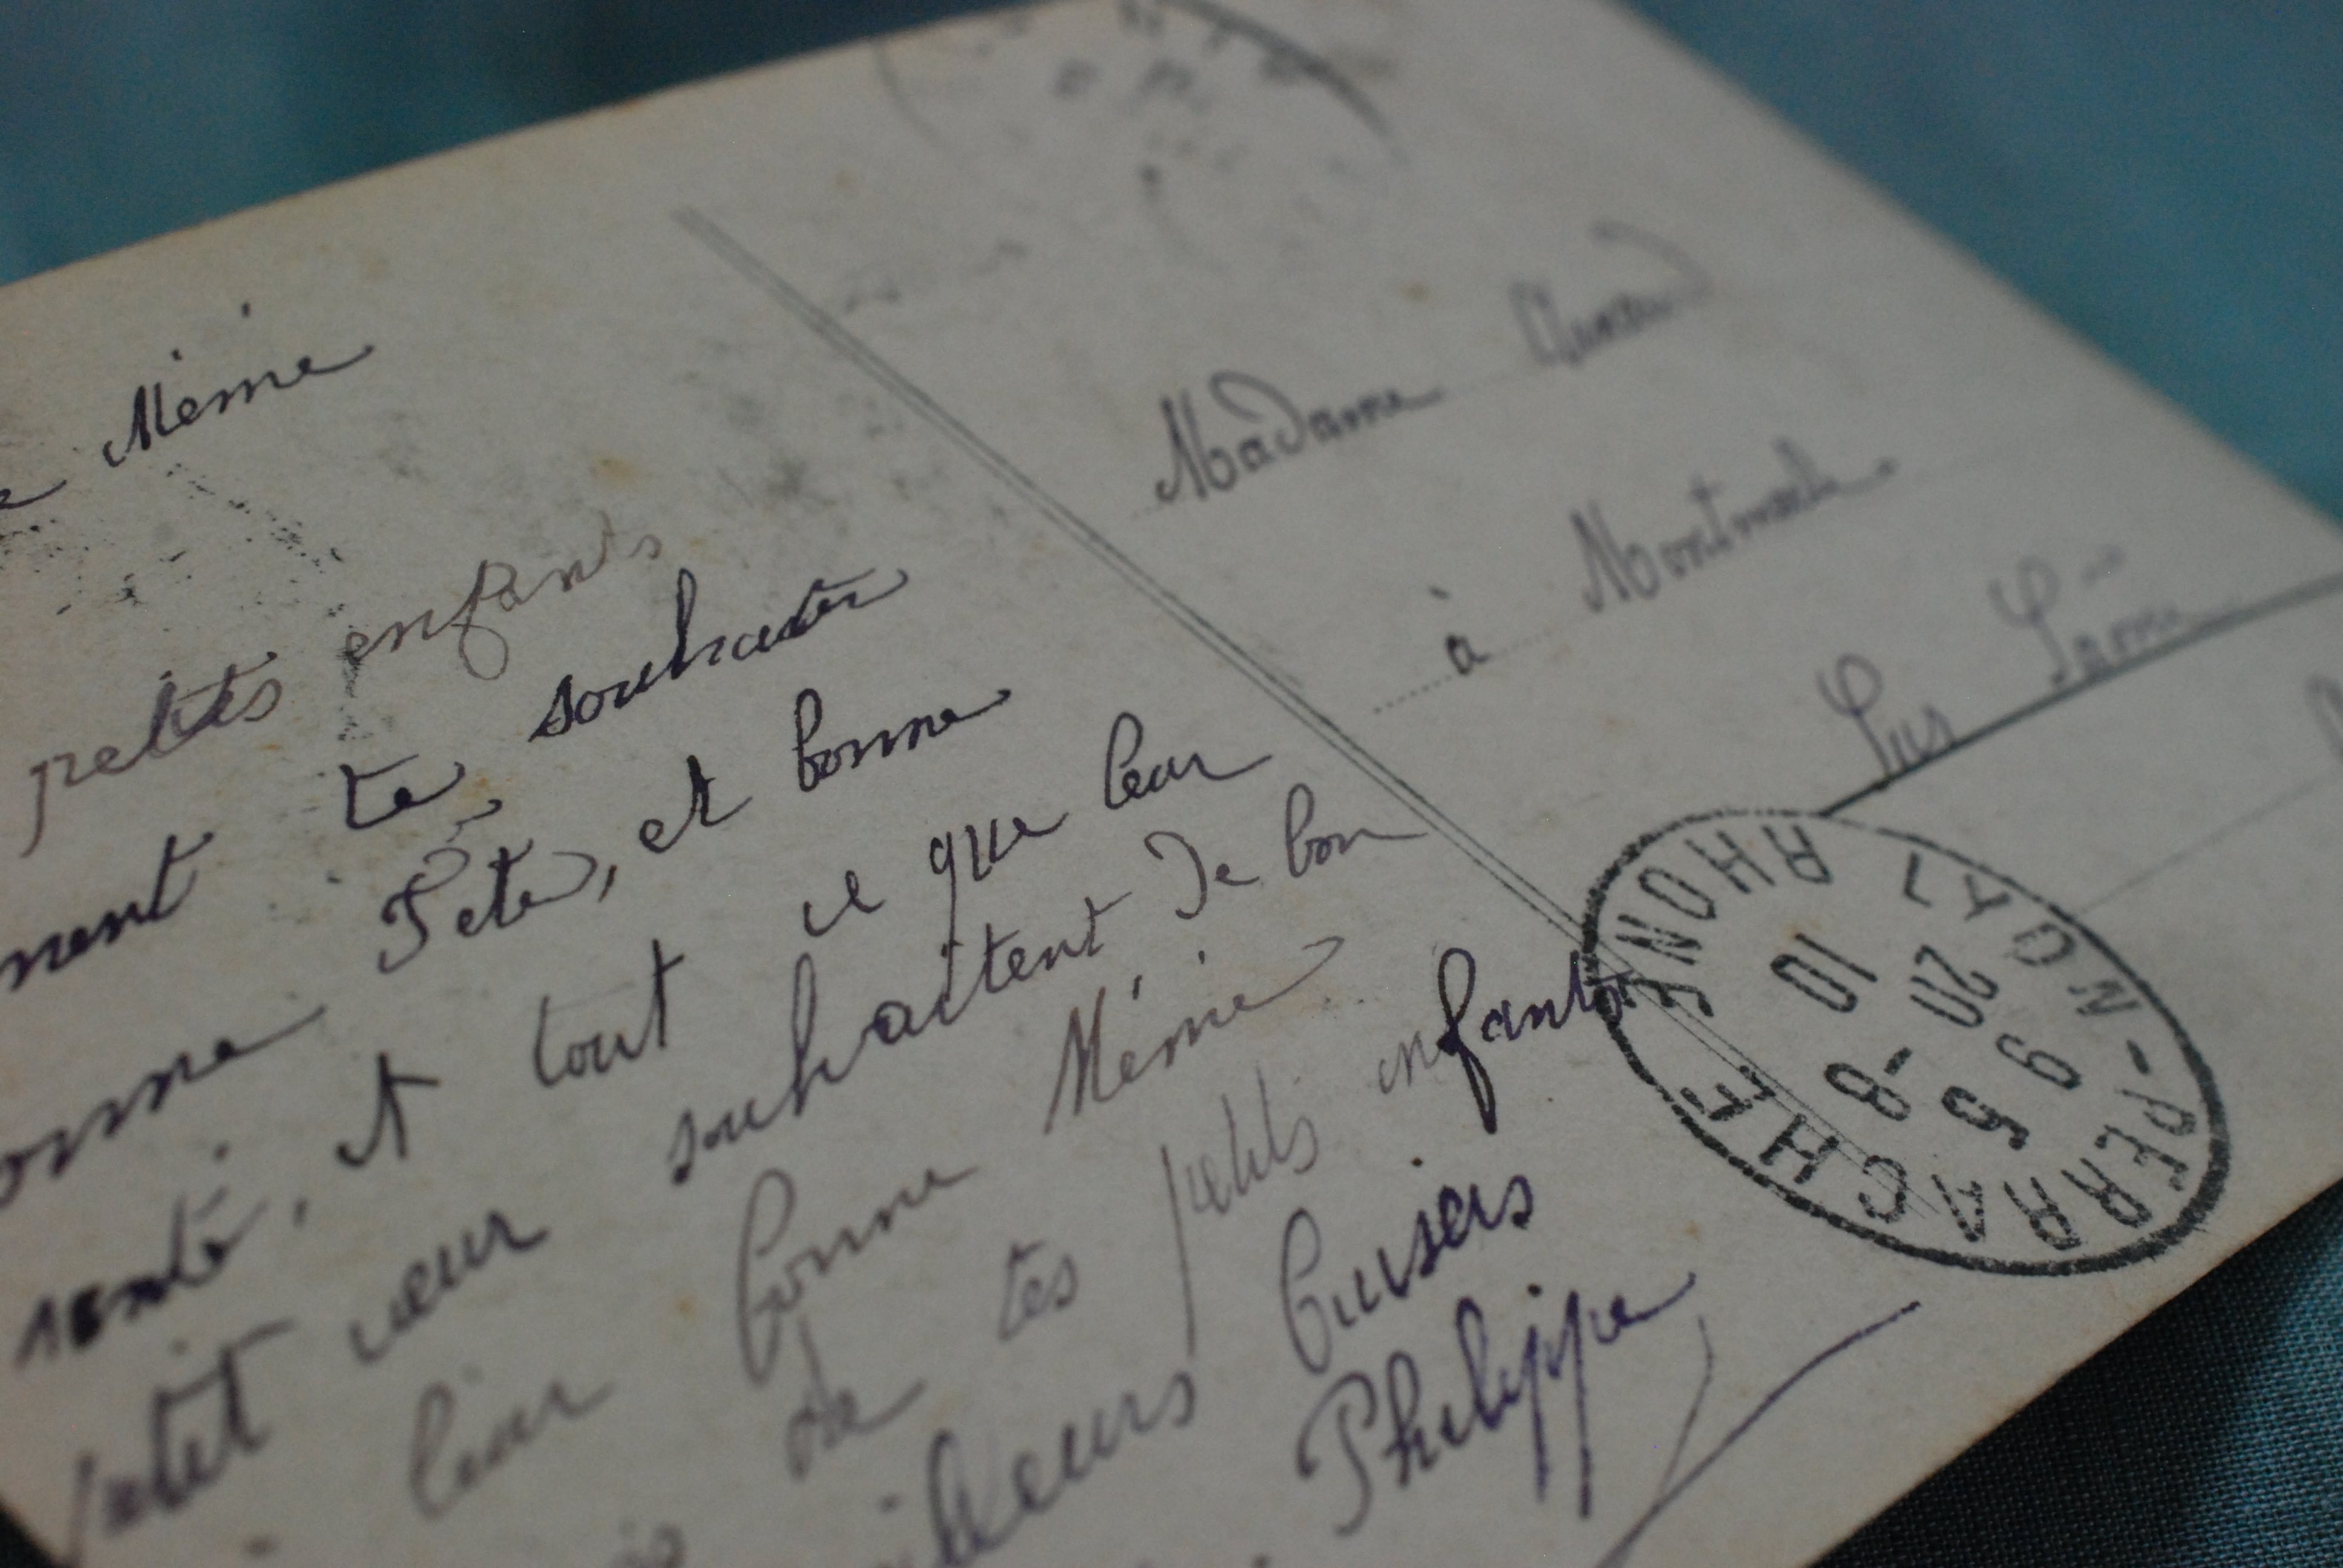 Mémé
petits enfants
ment te souhaiter
onne Fête, et bonne
santé, et tout ce que leur
petit cœur souhaitent de bon
leur bonne Mémé
de tes petits enfants
meilleurs baisers
Philippe
Madame
à
LYON-PERRACHE
RHONE
10
20
9
5
-8